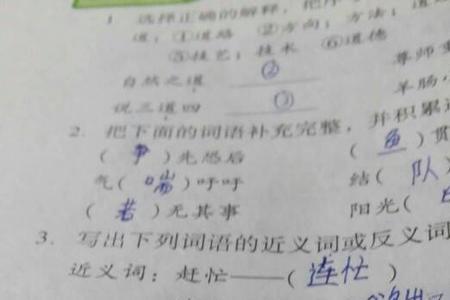 1 选择正确的解释，把序
道：①道路 ②方向；方法；道
③技艺；技术 ⑥道德
自然之道 ② 尊师
说三道四 ③ 羊肠
2. 把下面的词语补充完整，并积累
（争）先恐后 （鱼）贯
气（喘）吁吁 结（队
（若）无其事 阳光（
3. 写出下列词语的近义词或反义词
近义词：赶忙——（连忙）